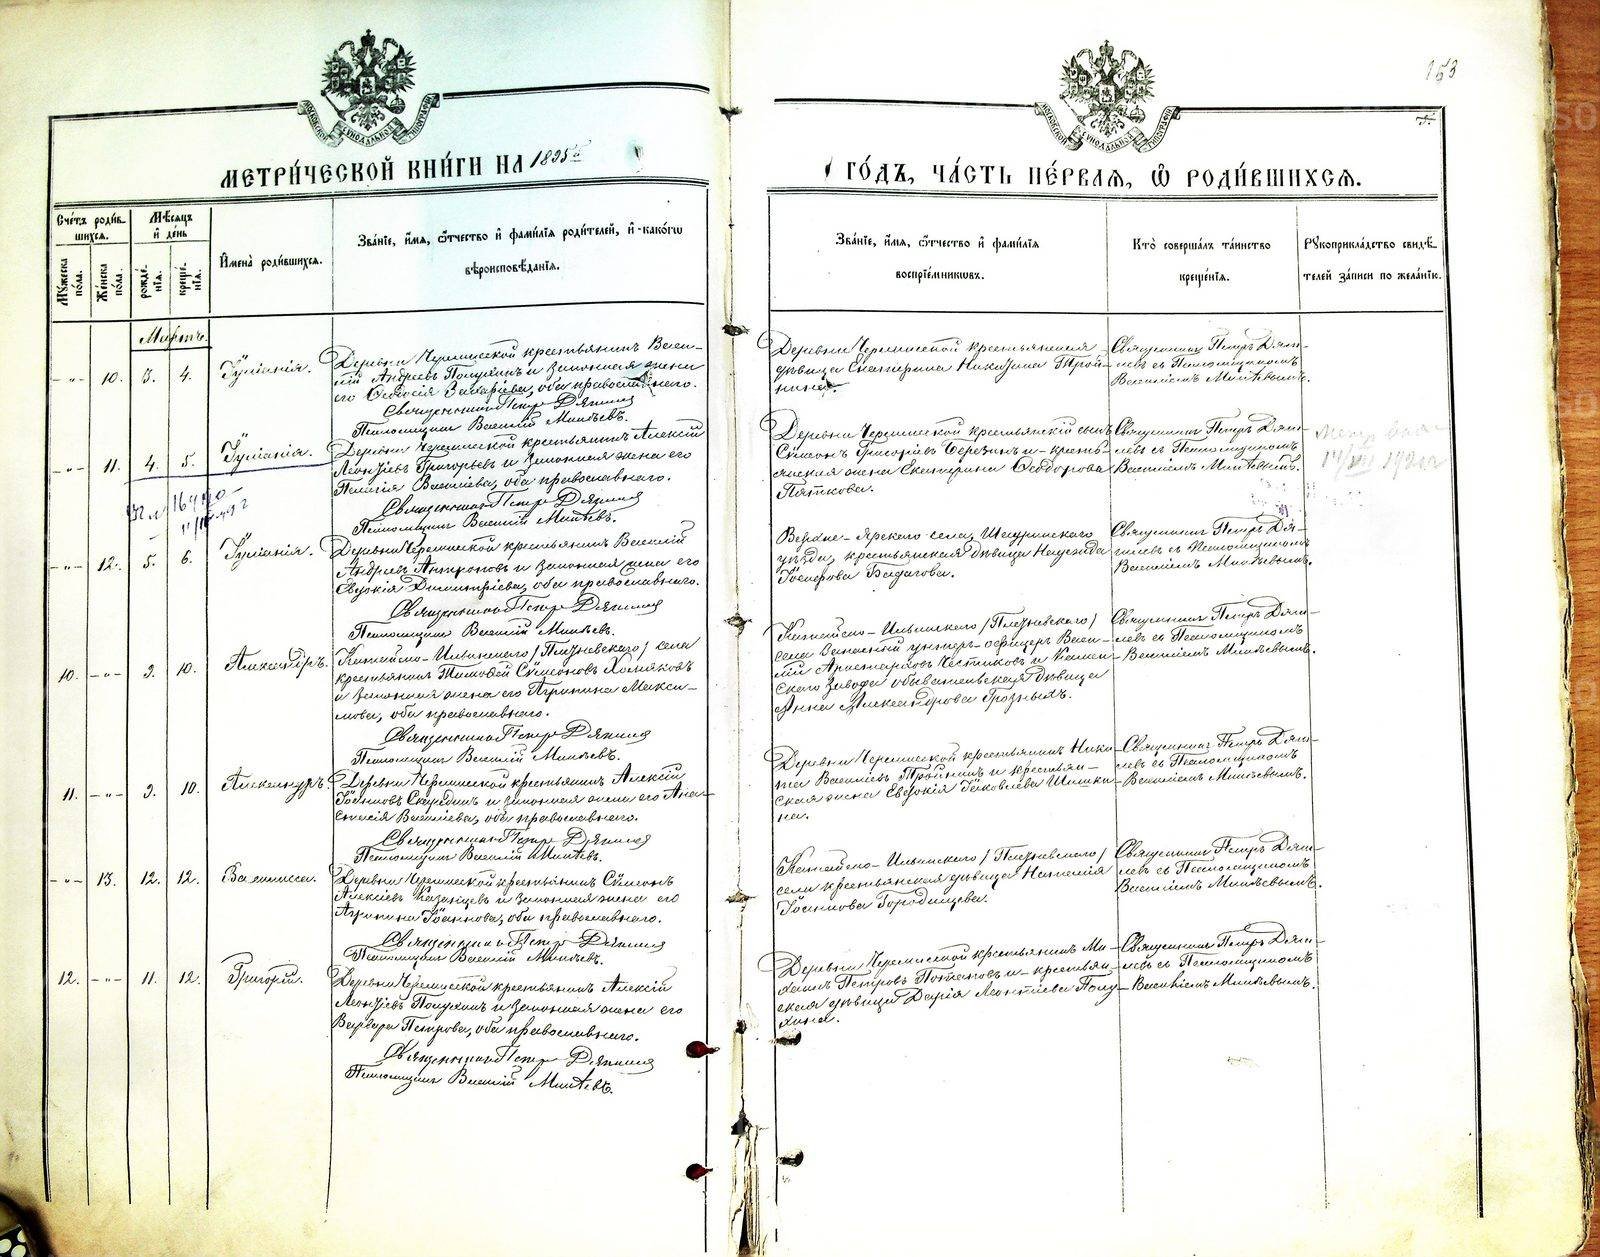 153
МОСКОВСКОЙ СѴНОДАЛЬНОЙ ТИПОГРАФІИ
МОСКОВСКОЙ СѴНОДАЛЬНОЙ ТИПОГРАФІИ
МЕТРИ́ЧЕСКОЙ КНИ́ГИ НА 1895й
ГО́ДЪ, ЧА́СТЬ ПЕ́РВАЯ, Ѽ РОДИ́ВШИХСЯ.
Сче́тъ роди́в-
шихся.
Му́жеска по́ла.
Же́нска по́ла.
Мѣ́сяцъ и де́нь
рожде́-нія.
креще́-нія.
Имена̀ роди́вшихся.
Зва́ніе, и́мя, ѻ҆́тчество и фами́лія роди́телей, и како́гѡ
вѣроисповѣ́данія.
Зва́ніе, и́мя, ѻ҆́тчество и фами́лія
воспріе́мниковъ.
Кто̀ соверша́лъ та́инство
креще́нія.
Рукоприкла́дство свидѣ́-
телей за́писи по жела́нію.
Мартъ.
-„- 10. 3. 4. Іуліанія.
Деревни Черемисской крестьянинъ Васи-
лій Андреевъ Полухинъ и законная жена
его Ѳеодосія Захаріева, оба православнаго.
Священникъ Петръ Дягилев
Псаломщикъ Василій Михѣевъ.
Деревни Черемисской крестьянская
дѣвица Екатерина Никитина Трой-
нина.
Священникъ Петръ Дяги-
левъ съ Псаломщикомъ
Василіемъ Михѣевымъ.
-„- 11. 4. 5. Іуліанія.
Деревни Черемисской крестьянинъ Алексій
Леонтіевъ Григорьевъ и законная жена его
Пелагія Василіева, оба православнаго.
Священникъ Петръ Дягилев
Псаломщикъ Василій Михѣевъ.
Деревни Черемисской крестьянскій сынъ
Сѵмеонъ Григоріевъ Березинъ и крестья-
янская жена Екатерина Ѳеодорова
Пяткова.
Священникъ Петръ Дяги-
левъ съ Псаломщикомъ
Василіемъ Михѣевымъ.
-„- 12. 5. 6. Іуліанія.
Деревни Черемисской крестьянинъ Василій
Андреевъ Антроповъ и законная жена его
Евдокія Димитріева, оба православнаго.
Священникъ Петръ Дягилев
Псаломщикъ Василій Михѣевъ.
Верхне-Ярскаго села, Шадринскаго
уѣзда, крестьянская дѣвица Надежда
Іосифова Багагова.
Священникъ Петръ Дя-
гилевъ съ Псаломщикомъ
Василіемъ Михѣевымъ.
10. -„- 9. 10. Александръ.
Катайско-Ильинскаго /Плуневскаго/ села
крестьянинъ Тимофей Сѵмеоновъ Хомяковъ
и законная жена его Агрипина Макси-
мова, оба православнаго.
Священникъ Петръ Дягилев
Псаломщикъ Василій Михѣевъ.
Катайско-Ильинскаго /Плуневскаго/
села запасный унтеръ-офицеръ Васи-
лій Аристарховъ и Камен-
скаго Завода обывательская дѣвица
Анна Александрова Грозныхъ.
Священникъ Петръ Дяги-
левъ съ Псаломщикомъ
Василіемъ Михѣевымъ.
11. -„- 9. 10. Александръ.
Деревни Черемисской крестьянинъ Алексій
Іоанновъ Скурединъ и законная жена его Ана-
стасія Василіева, оба православнаго.
Священникъ Петръ Дягилев
Псаломщикъ Василій Михѣевъ.
Деревни Черемисской крестьянинъ Ники-
та Василіевъ Тройнинъ и крестьян-
ская жена Евдокія Іаковлева Шишки-
на.
Священникъ Петръ Дяги-
левъ съ Псаломщикомъ
Василіемъ Михѣевымъ.
-„- 13. 12. 12. Василисса.
Деревни Черемисской крестьянинъ Сѵмеонъ
Алексіевъ Казанцевъ и законная жена его
Агрипина Іоаннова, оба православнаго.
Священникъ Петръ Дягилев
Псаломщикъ Василій Михѣевъ.
Катайско-Ильинскаго /Плуневскаго/
села крестьянская дѣвица Наталія
Іоаннова Городищева.
Священникъ Петръ Дяги-
левъ съ Псаломщикомъ
Василіемъ Михѣевымъ.
12. -„- 11. 12. Григорій.
Деревни Черемисской крестьянинъ Алексій
Леонтіевъ Полухинъ и законная жена его
Варвара Петрова, оба православнаго.
Священникъ Петръ Дягилев
Псаломщикъ Василій Михѣевъ.
Деревни Черемисской крестьянинъ Ми-
хаилъ Петровъ Потаповъ и крестьян-
ская дѣвица Дарія Леонтіева Полу-
хина.
Священникъ Петръ Дяги-
левъ съ Псаломщикомъ
Василіемъ Михѣевымъ.